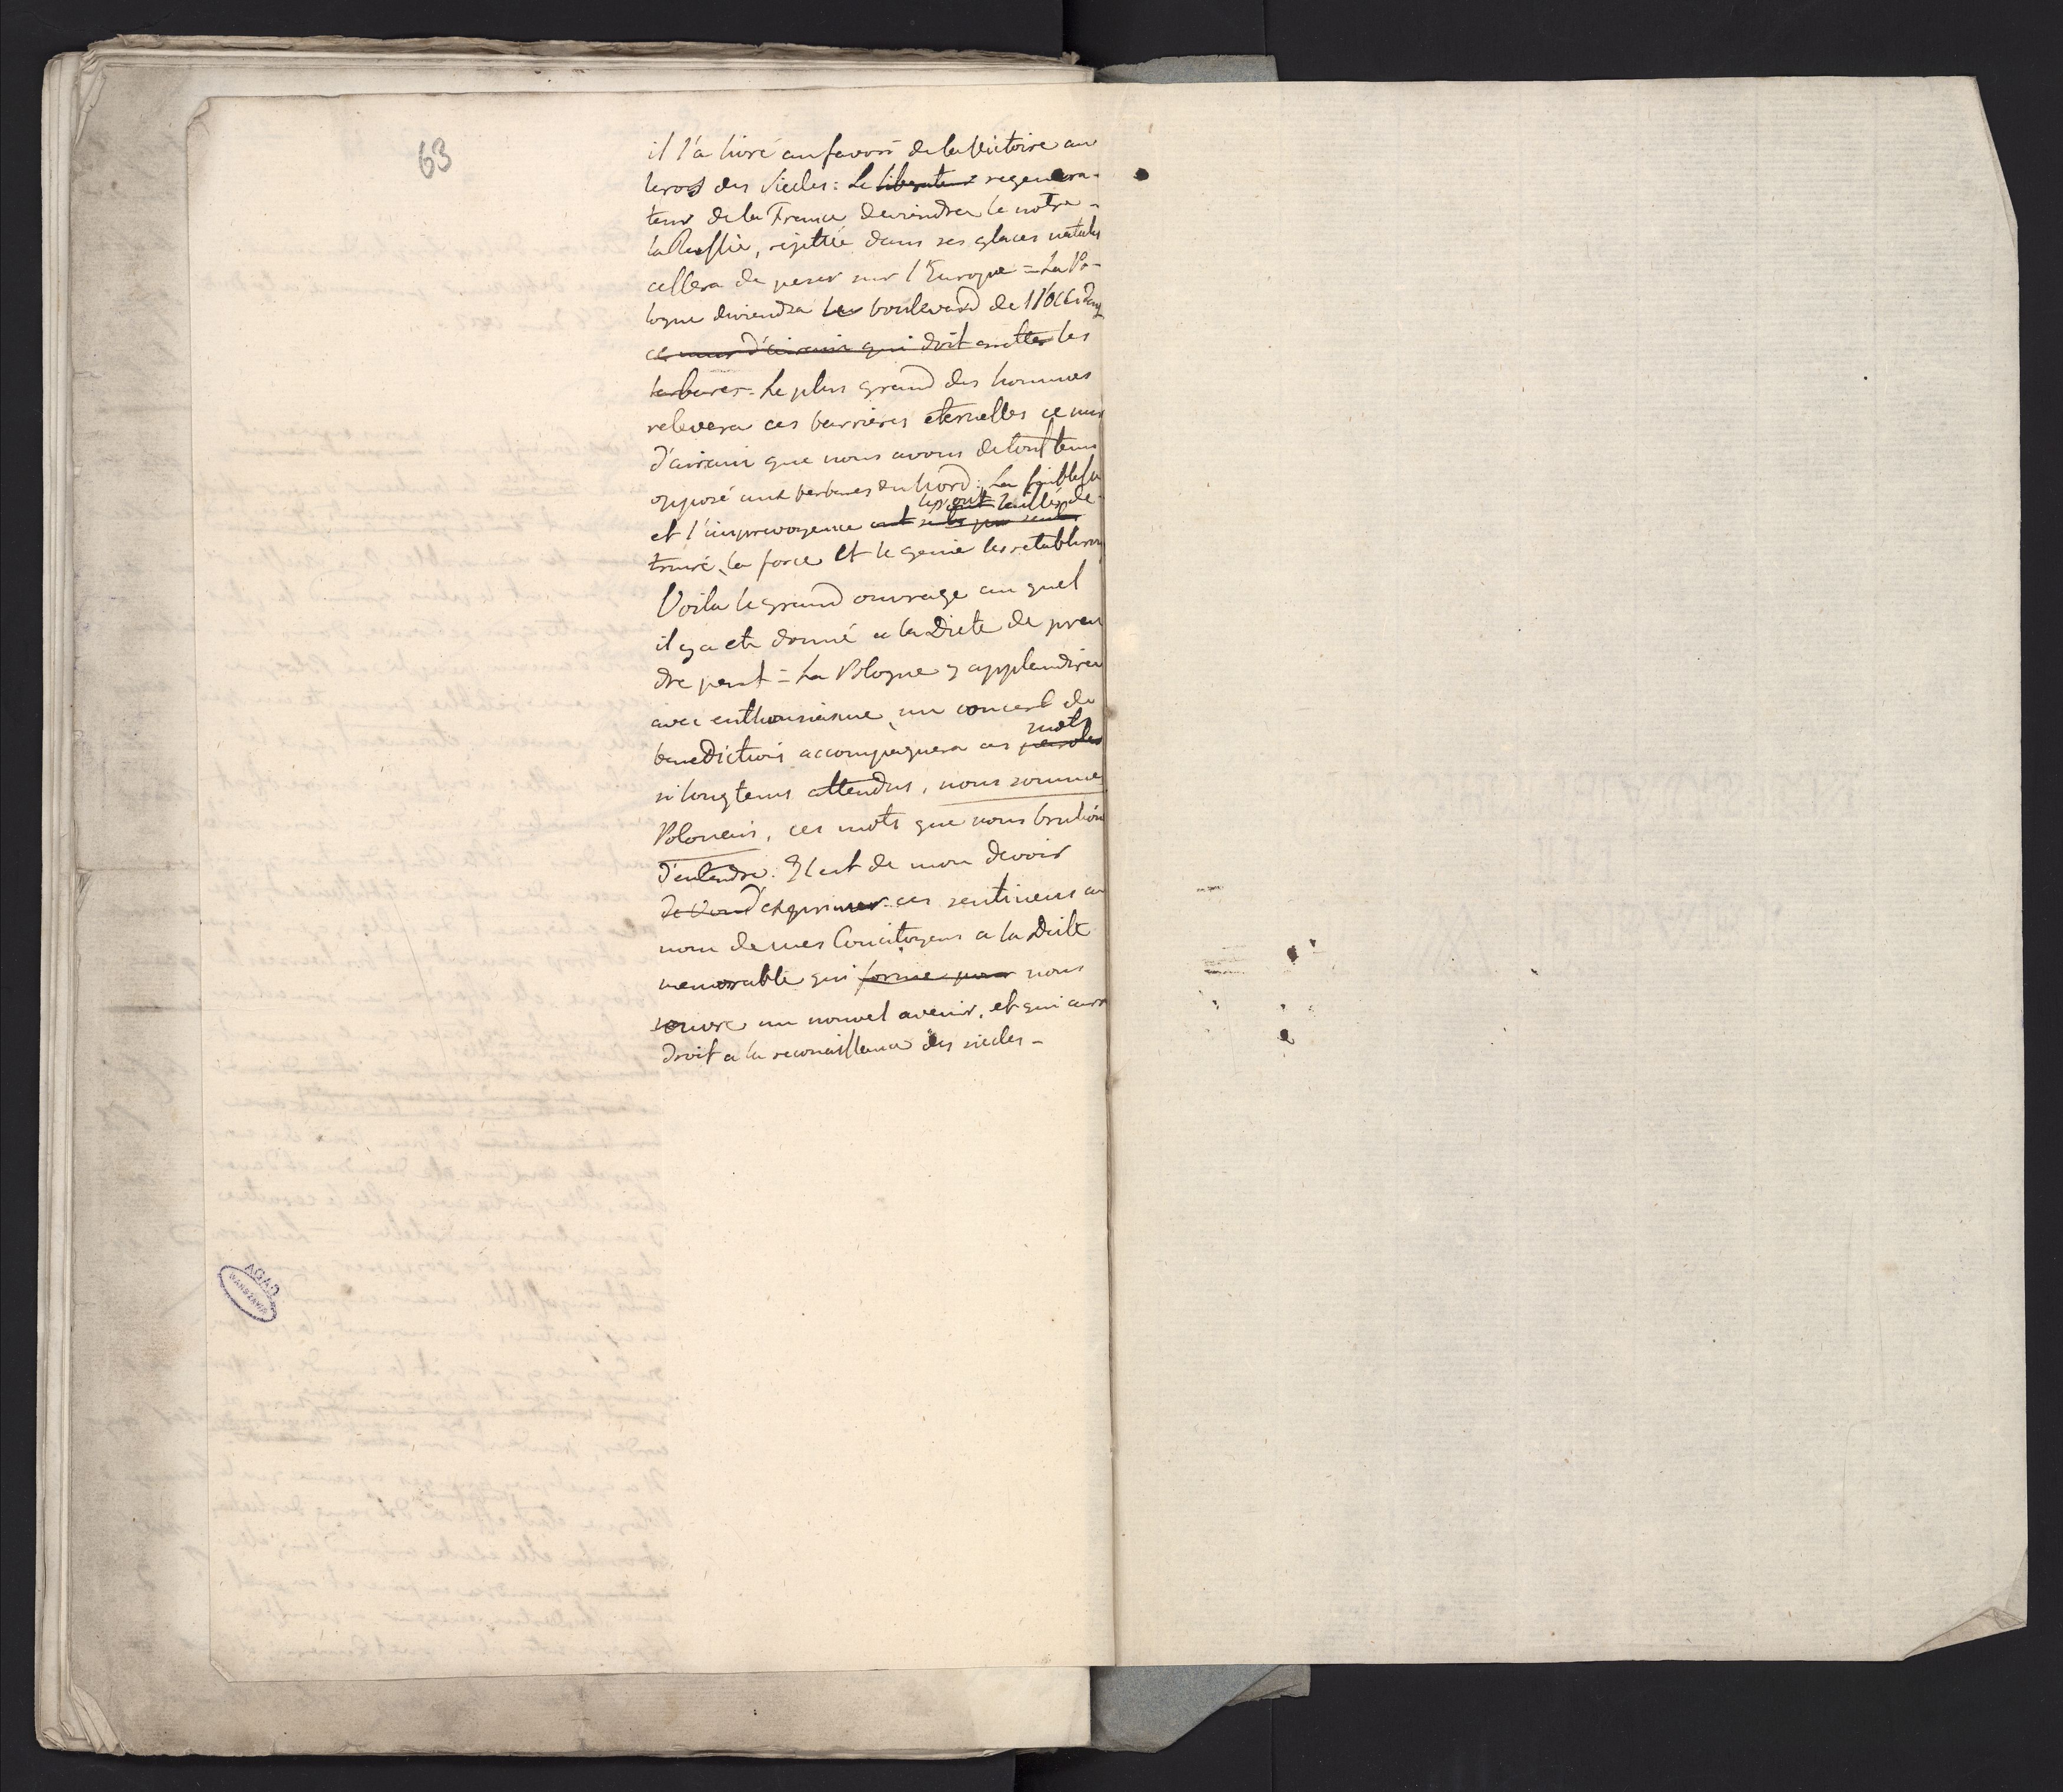 63
il l'a livré au favori de la Victoire au
heros des Siecles : Le liberateur regenera-
teur de la France deviendra le notre -
la Russie, rejettée dans ses glaces natales
cessera de peser sur l'Europe = La Po-
logne deviendra le boulevard de l'Occident
ce mur d'airain qui doit arretter les
barbares - Le plus grand des hommes
relevera ces barrieres eternelles ce mur
d'airain que nous avons de tout tems
opposé aux barbares du Nord : La faiblesse
les ont laissés de-
et l'imprevoyence ont
truire, la force et le genie les retabliront
Voila le grand ouvrage au quel
il y a eté donné a la Diete de pren
dre part = La Pologne y applaudira
avec enthousiasme, un concert de
mots
benedictions accompagnera ces paroles
si longtems attendus, nous sommes
Polonais, ces mots que nous brulions
d'entendre. Il est de mon devoir
de vous d'exprimer ces sentimens au
nom de mes Concitoyens a la Diete
memorable qui forme pour nous
ouvre un nouvel avenir, et qui aura
droit a la reconaissance des siecles -
AGAD
WARSZAWA